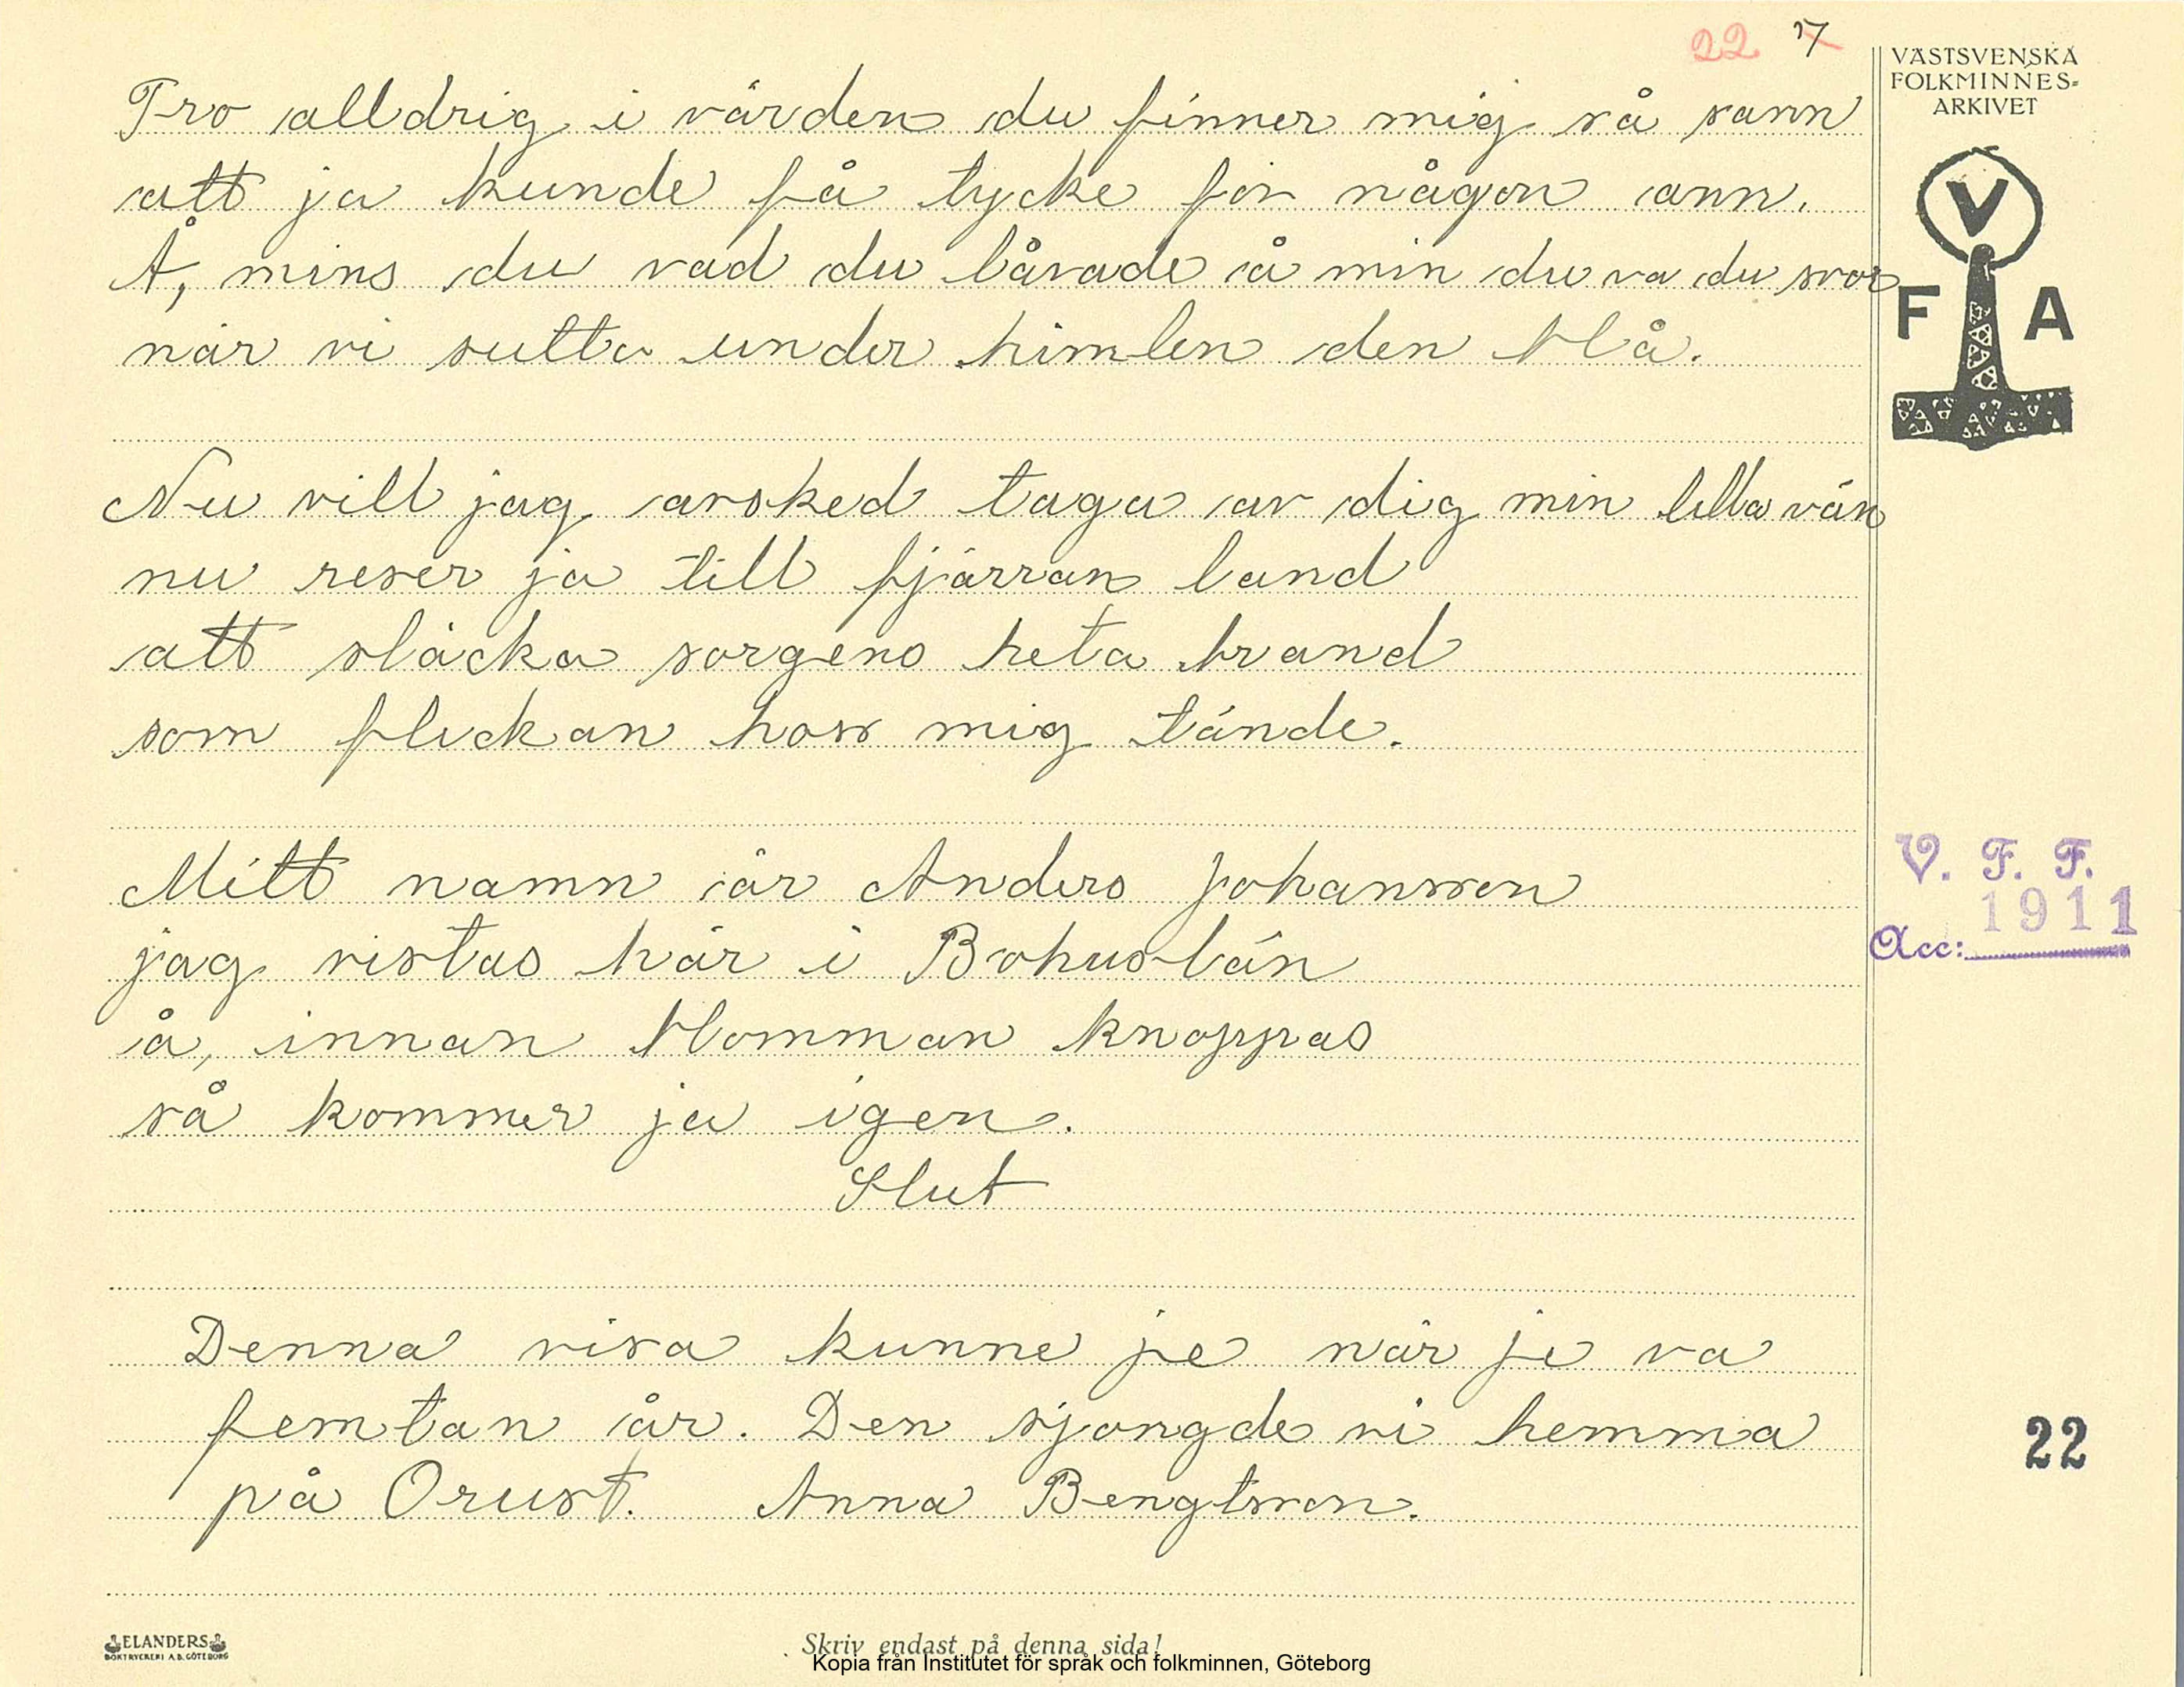 22 7
Tro alldrig i värden du finner mig så sann
att ja kunde få tycke för någon ann.
Å, mins du vad du låvade å min du va du svor
när vi sutta under himlen den blå.
Nu vill jag avsked taga av dig min lilla vän
nu reser ja till fjärran land
att släcka sorgens heta brand
som flickan hoss mig tände.
Mitt namn är Anders Johansson
jag vistas här i Bohuslän
å, innan blomman knoppas
så kommer ja igen.
Slut
Denna visa kunne je när je va
femtan år. Den sjongde vi hemma
på Orust. Anna Bengtsson.
VÄSTSVENSKA
FOLKMINNES-
ARKIVET
V
F A
V. F. F.
1911
Acc:
22
ELANDERS
BOKTRYCKERI A.B. GÖTEBORG
Skriv endast på denna sida!
Kopia från Institutet för språk och folkminnen, Göteborg